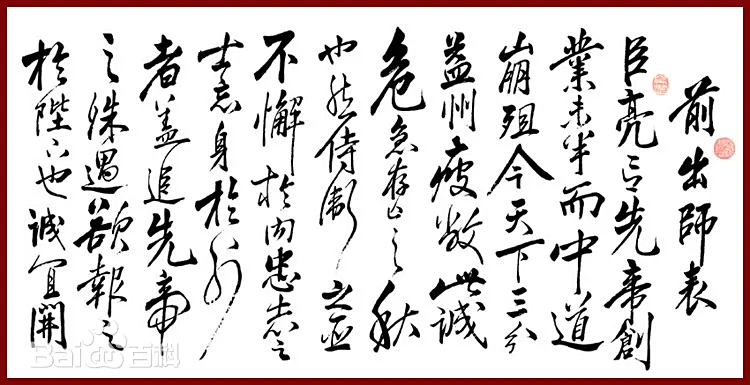 前出師表
臣亮言先帝創
業未半而中道
崩殂今天下三分
益州疲敝此誠
危急存亡之秋
也然侍衛之臣
不懈於內忠志之
士忘身於外
者蓋追先帝
之殊遇欲報之
於陛下也誠宜開
Bai du 百科